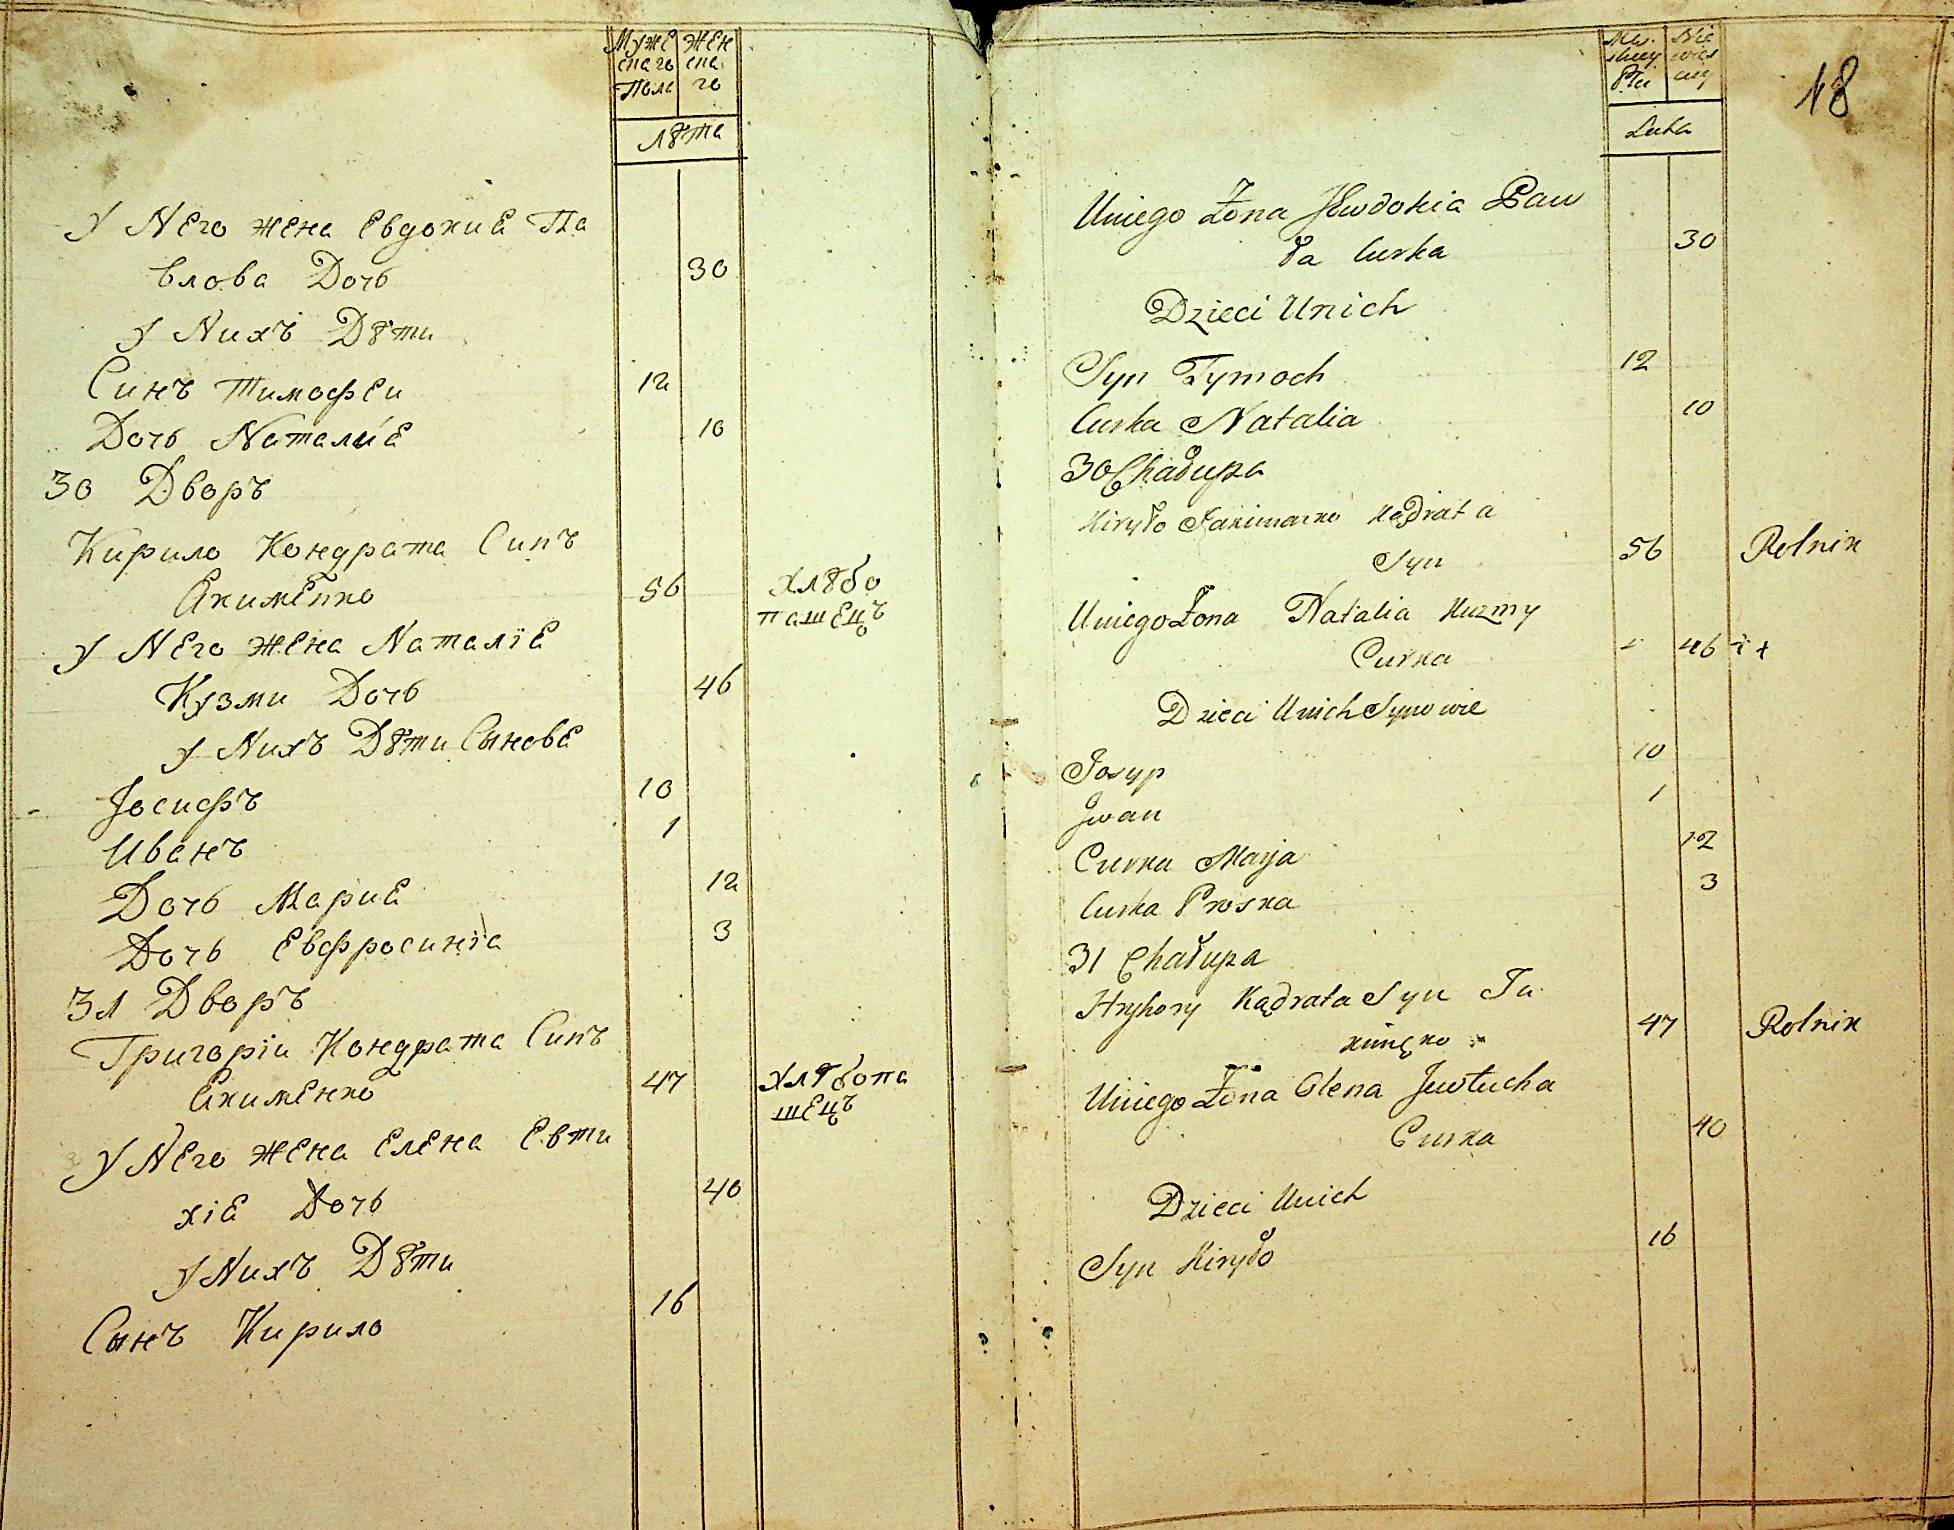 Муже Жен
скаго ска
Полa го
Лѣта
У Него жена Евдокиѣ Па
влова Дочь 30
у Нихъ Дѣти
Синъ Тимофеи 12
Дочь Наталиѣ 10
30 Дворъ
Кирило Кондрата Синъ
Якименко 56 хлѣбо
пашецъ
у Него жена Наталіѣ
Кузми Дочь 46
у Нихъ Дѣти Сыновѣ
Іосифъ 10
Иванъ 1
Дочь Мариѣ 12
Дочь Евфросиніа 3
31 Дворъ
Григоріи Кондрата Синъ
Якименко 47 хлѣбопа
шецъ
У Него жена Елена Евти
хіѣ Дочь 40
у Нихъ Дѣти
Сынъ Кирило 16
18
Płci
Lata
Uniego Żona Jewdokia Paw
ła Curka 30
Dzieci Unich
Syn Tymoch 12
Curka Natalia 10
30 Chałupa
Kiryło Jakimenko Kądrata
Syn 56 Rolnik
Uniego Żona Natalia Kuzmy
Curka 46
Dzieci Unich Synowie
Josyp 10
Jwan 1
Curka Marja 12
Curka Proska 3
31 Chałupa
Hryhory Kądrata Syn Ja
kimęko 47 Rolnik
Uniego Żona Olena Jewtucha
Curka 40
Dzieci Unich
Syn Kiryło 16